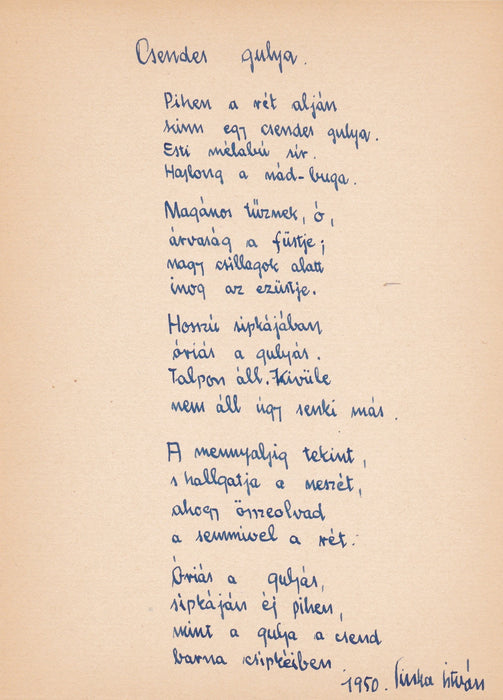 Csendes gulya.
Pihen a rét alján
kinn egy csendes gulya.
Esti mélabú sír.
Hajlong a nád-buga.
Magános tűznek, ó,
árvaság a füstje;
nagy csillagok alatt
inog az ezüstje.
Hosszú sipkájában
óriás a gulyás.
Talpon áll. Kivüle
nem áll úgy senki más.
A mennyaljig tekint,
s hallgatja a neszét,
ahogy összeolvad
a semmivel a rét.
Óriás a gulyás,
sipkáján éj pihen,
mint a gulya a csend
barna csipkéiben
1950. Sinka István